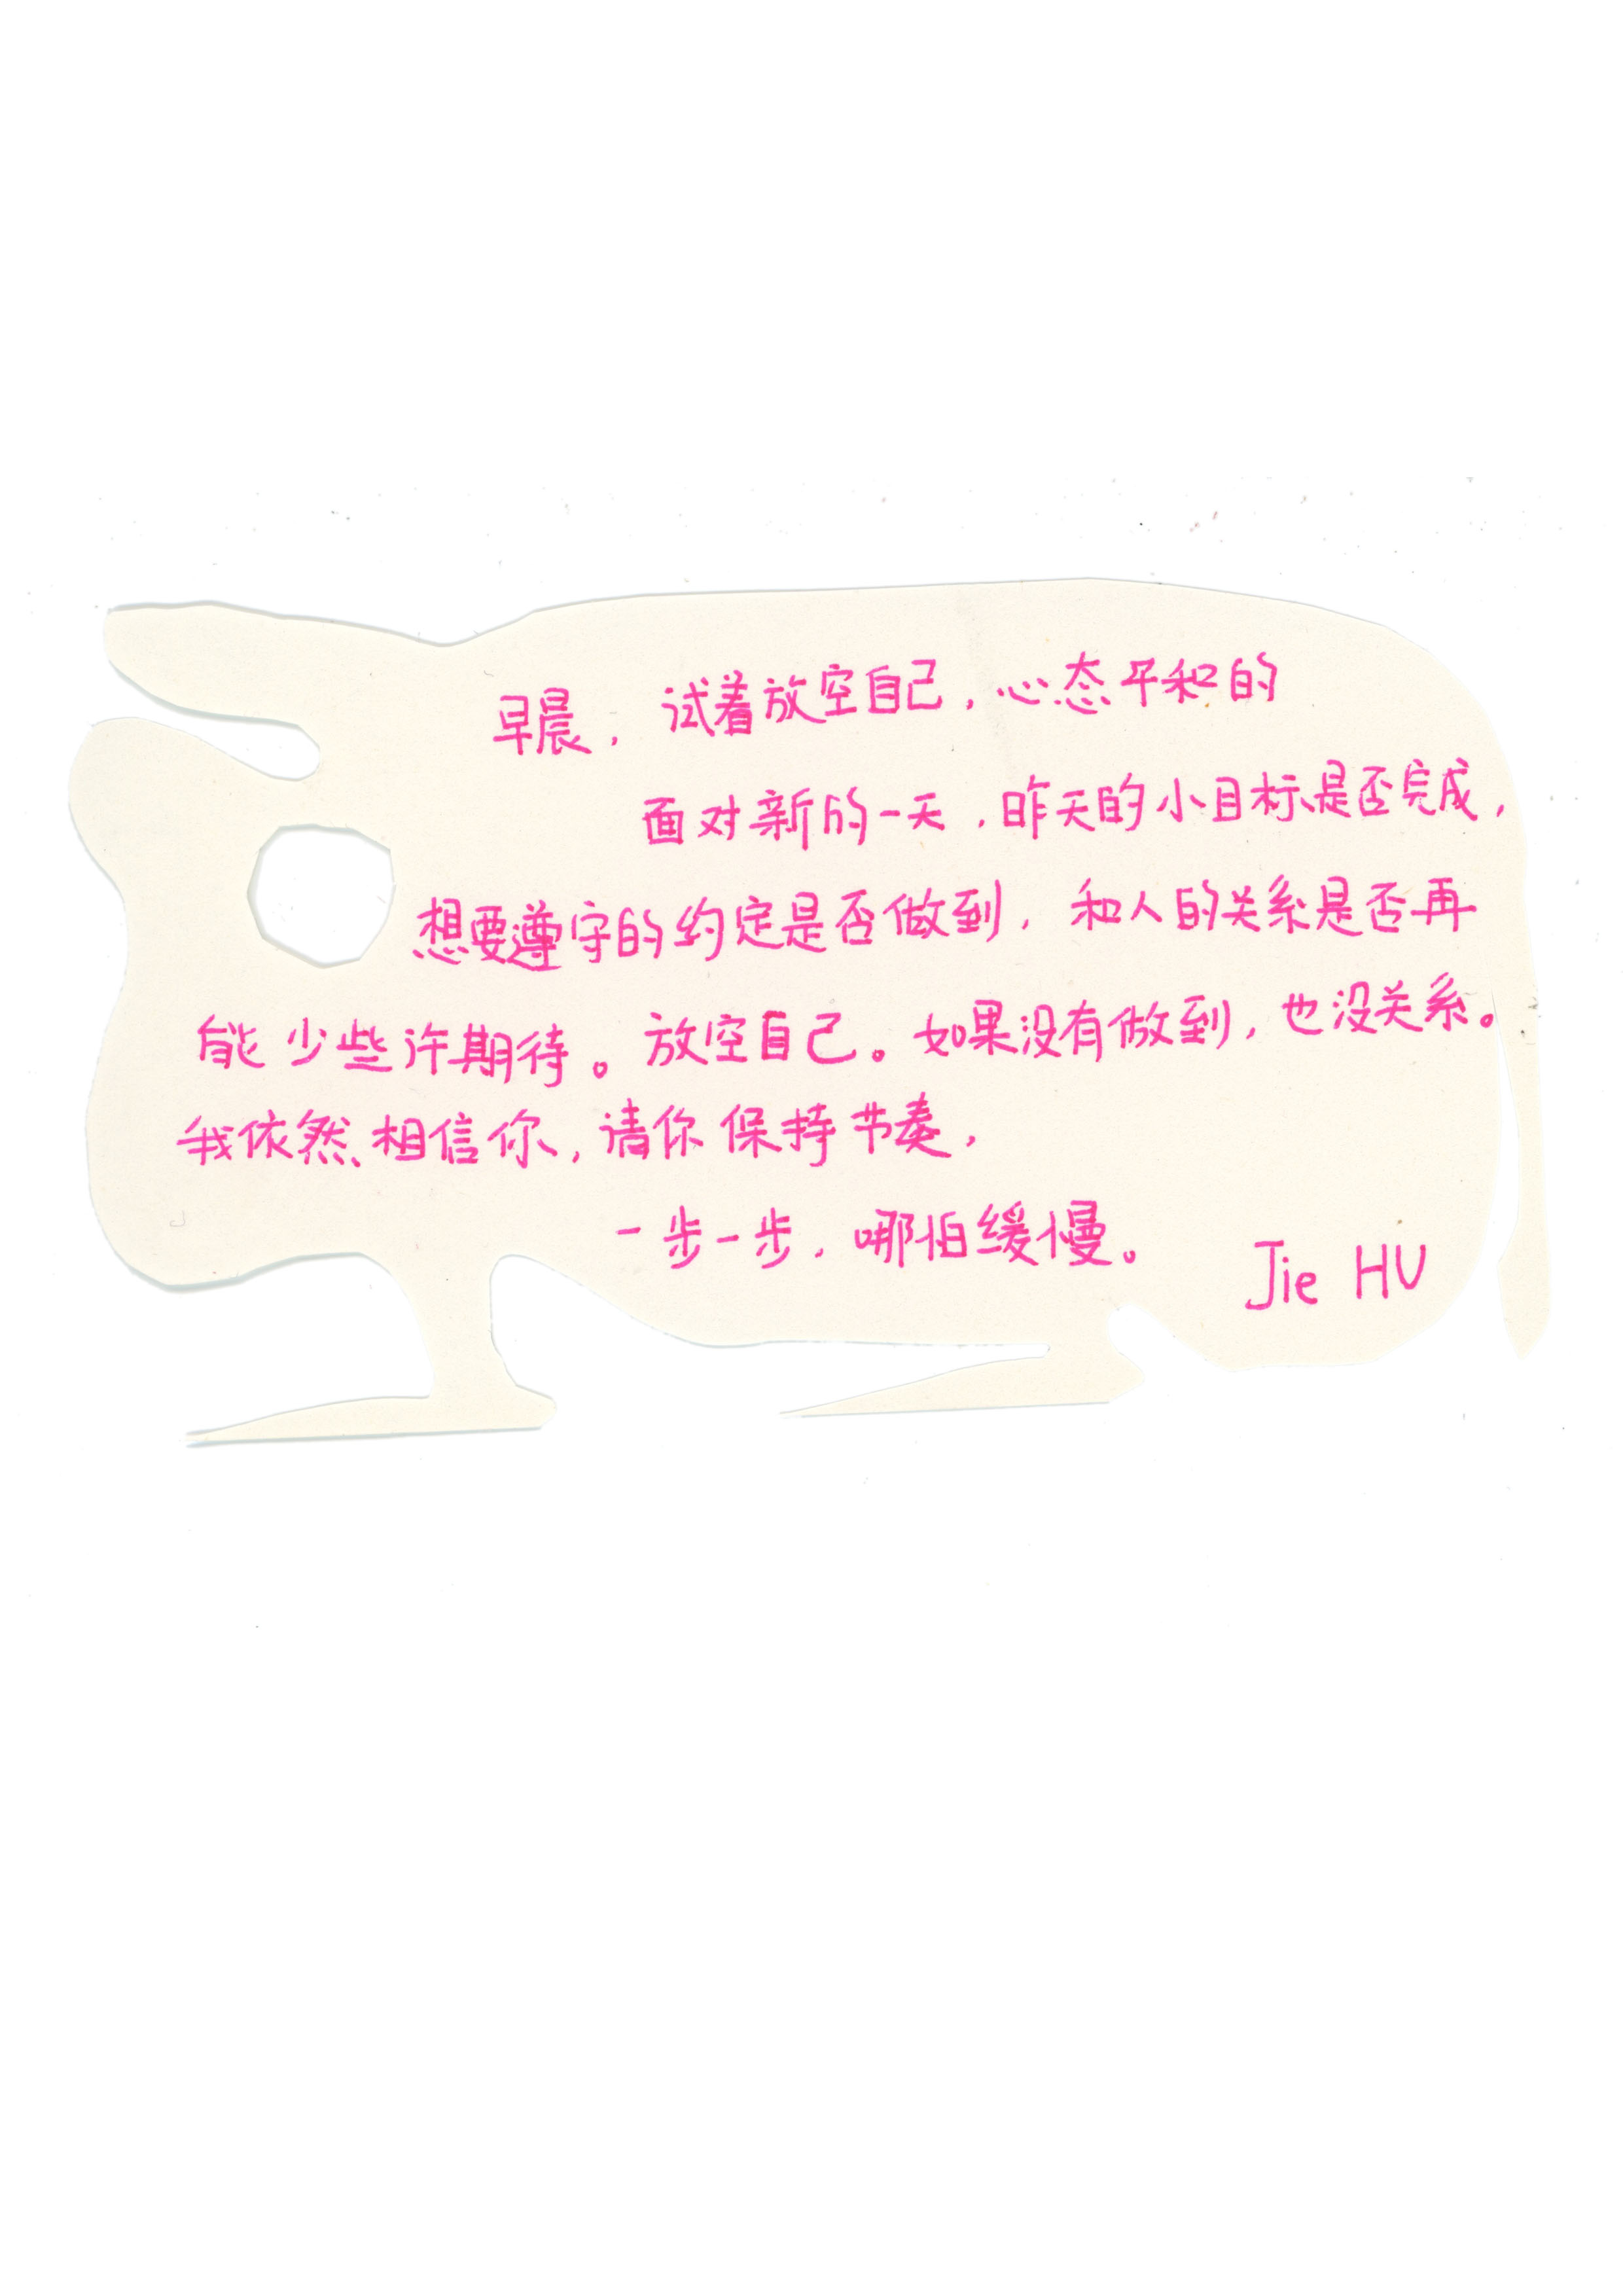 早晨，试着放空自己，心态平和的
面对新的一天，昨天的小目标是否完成，
想要遵守的约定是否做到，和人的关系是否再
能少些许期待。放空自己。如果没有做到，也没关系。
我依然相信你，请你保持节奏，
一步一步，哪怕缓慢。
Jie HU